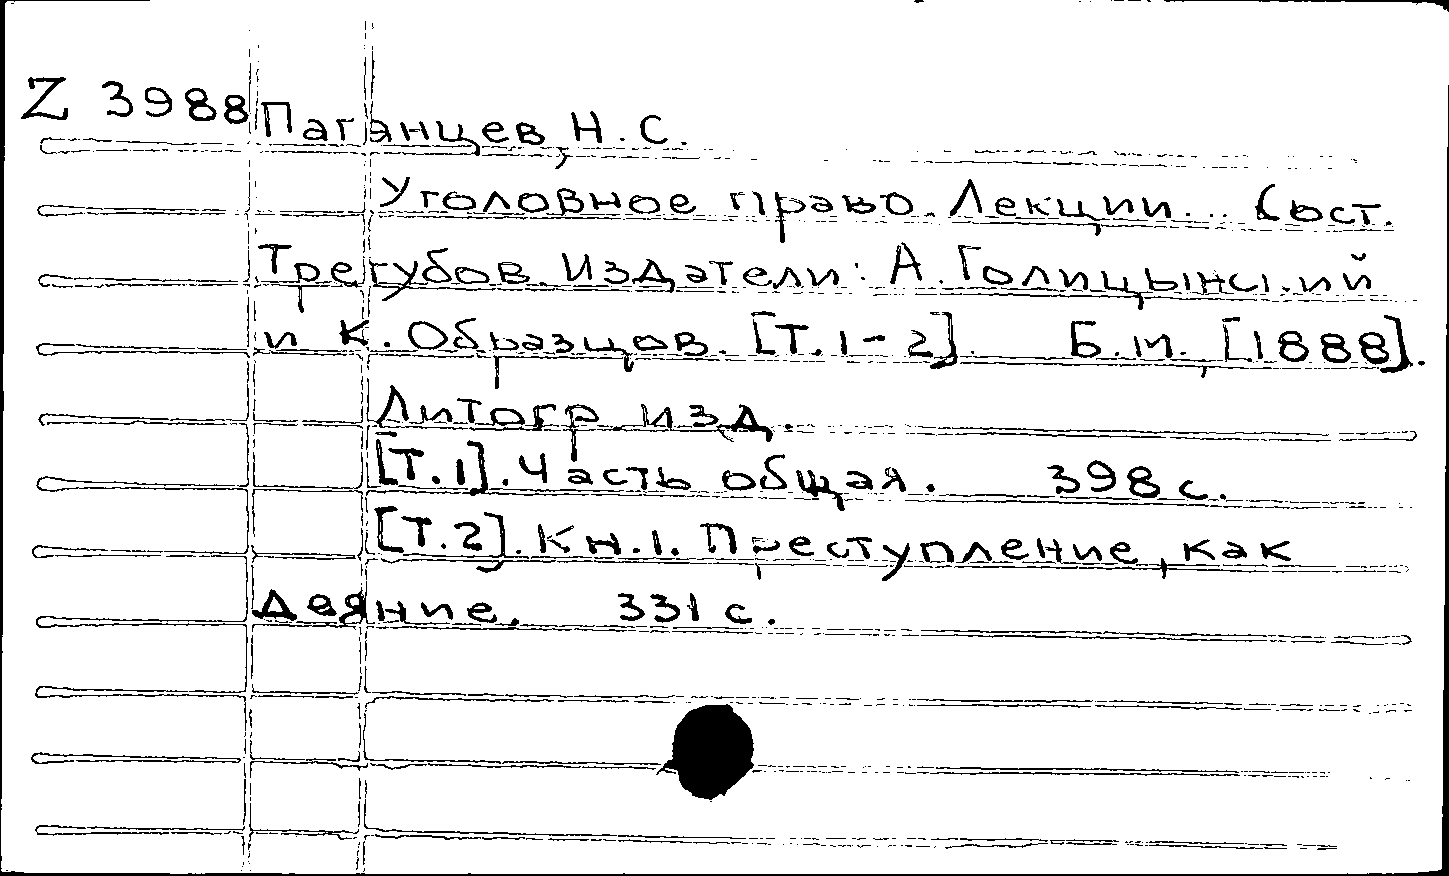 Z 3988 Паганцев, Н. С.
Уголовное право. Лекции... Сост.
Трегубов. Издатели: А. Голицынский
и К. Образцов. [Т. 1-2]. Б. м., [1888].
Литогр. изд.
[Т. 1]. Часть общая. 398 с.
[Т. 2]. Кн. 1. Преступление, как
деяние. 331 с.